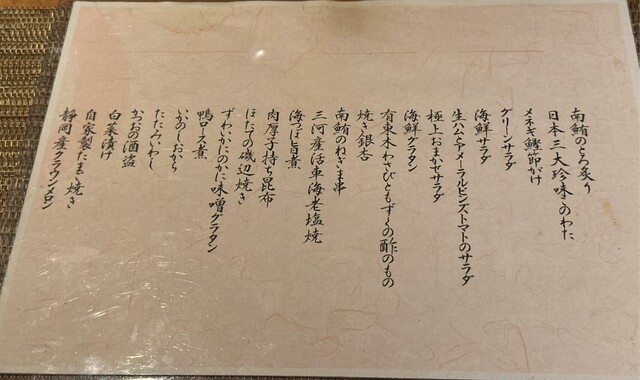 南鮪のとろ炙り
日本三大珍味このわた
メネギ鰹節がけ
グリーンサラダ
海鮮サラダ
生ハムとアメーラルビンズトマトのサラダ
極上おまかせサラダ
海鮮グラタン
有東木わさびともずくの酢のもの
焼き銀杏
南鮪のねぎま串
三河産活車海老塩焼
海つぼ旨煮
肉厚子持ち昆布
ほたての磯辺焼き
ずわいかにのかに味噌グラタン
鴨ロース煮
いかのしおから
たたみいわし
かつおの酒盗
白菜漬け
自家製たまご焼き
静岡産クラウンメロン